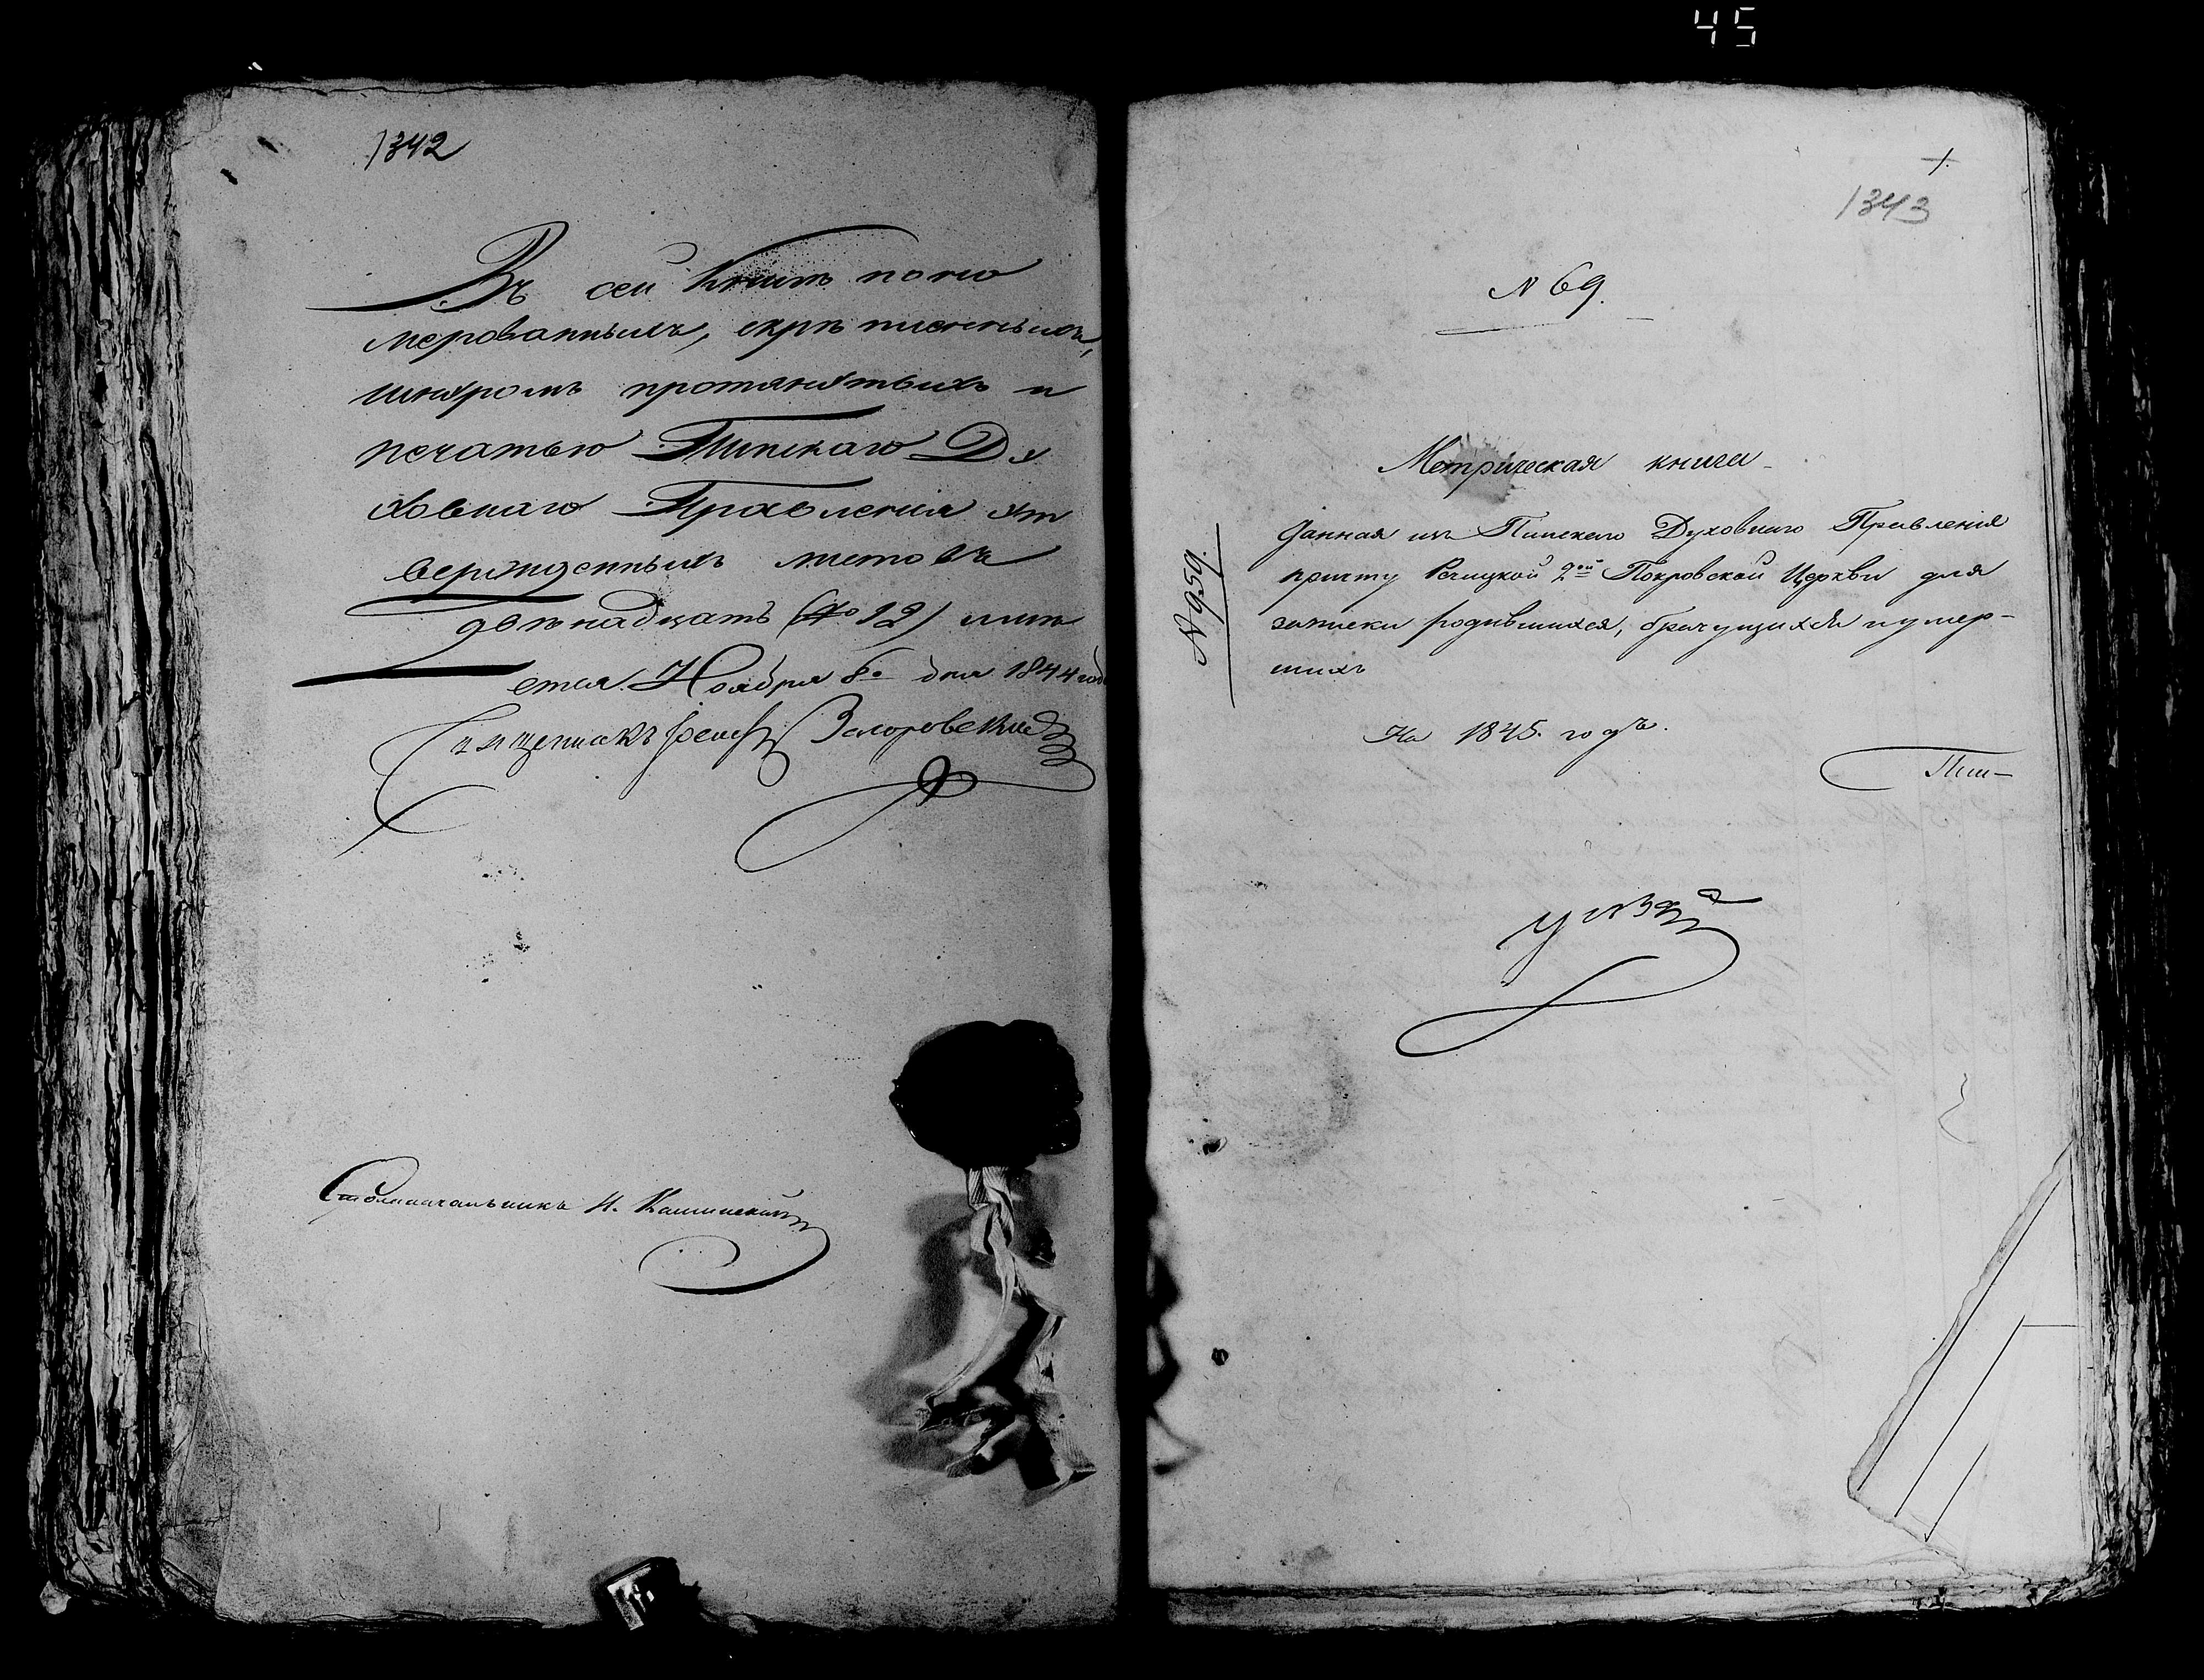 45
1342
Въ сей Книгѣ пону
мерованныхъ, скрѣпленныхъ,
шнуромъ протянутыхъ и
печатью Пинскаго Ду
ховнаго Правленія ут
вержденныхъ листовъ
двѣнадцать (12) имѣ
ется. Ноября 8го дня 1844 года
Священникъ Іосифъ
Столоначальникъ
1343
N 69.
N 959.
Метрическая книга
данная изъ Пинскаго Духовнаго Правленія
причту Речицкой 2ой Покровской Церкви для
записки родившихся, брачущихся и умер-
шихъ
На 1845. годъ.
Пин-
уѣзда